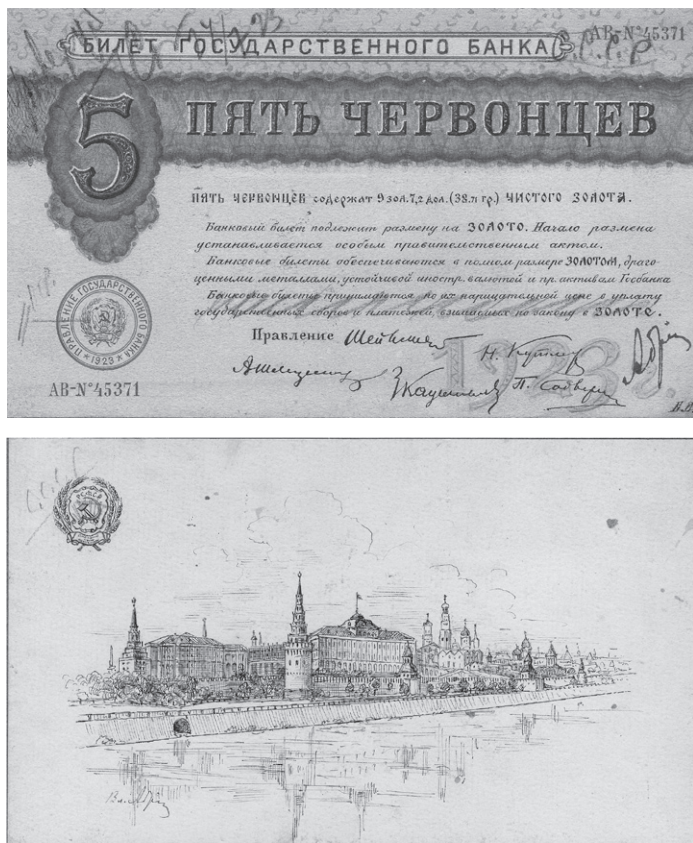 БИЛЕТ ГОСУДАРСТВЕННОГО БАНКА
АВ-№45371
5
ПЯТЬ ЧЕРВОНЦЕВ
ПЯТЬ ЧЕРВОНЦЕВ содержат 9 зол. 7,2 дол. (38.71 гр.) ЧИСТОГО ЗОЛОТА.
Банковый билет подлежит размену на ЗОЛОТО. Начало размена
устанавливается особым правительственным актом.
Банковые билеты обеспечиваются в полном размере ЗОЛОТОМ, драго-
ценными металлами, устойчивой иностр. валютой и пр. активам Госбанка
Банковые билеты принимаются по их нарицательной цене в уплату
государственных сборов и платежей, взимаемых по закону в ЗОЛОТЕ.
ПРАВЛЕНИЕ ГОСУДАРСТВЕННОГО БАНКА
1923
Правление
1923
АВ-№45371